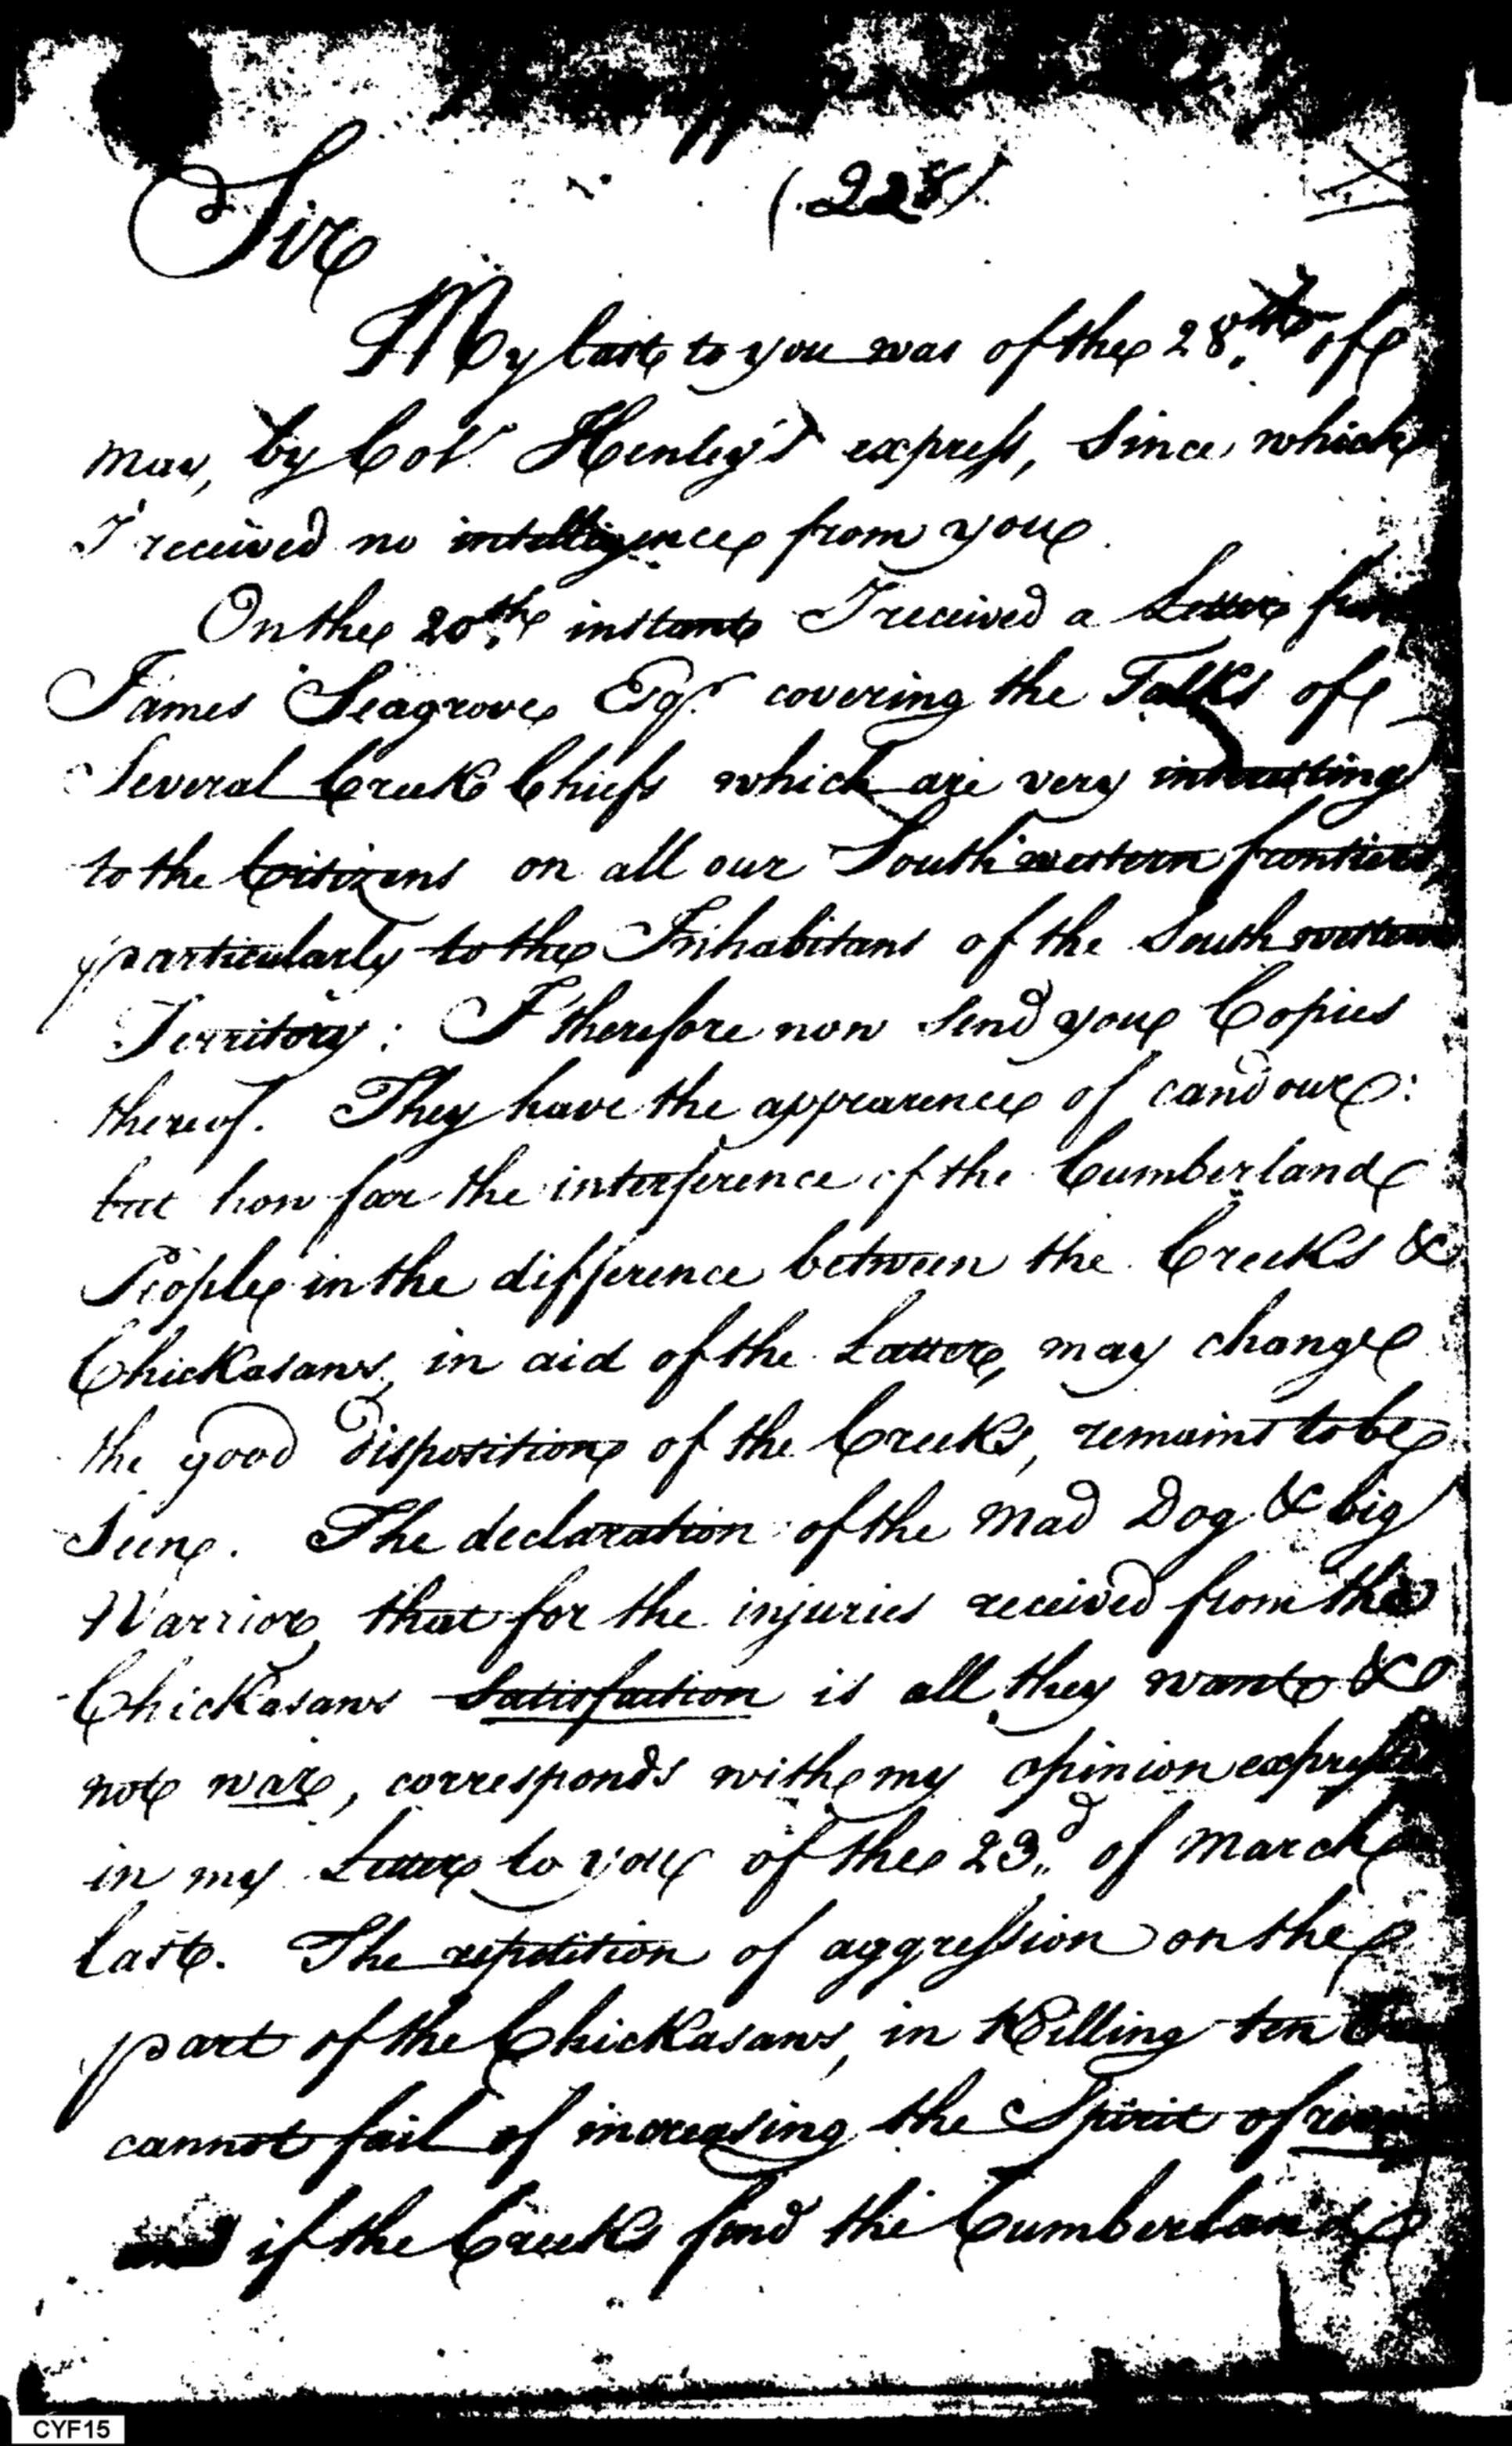 (228)
Sir
My last to you was of the 28th. of
May, by Col. Henley's express, Since which
I received no intelligence from you.
On the 20th. instant I received a Letter from
James Seagrove Esqr. covering the Talks of
Several Creek Chiefs which are very interesting
to the Citizens on all our South western frontiers,
particularly to the Inhabitans of the South western
Territory: I therefore now send you Copies
thereof. They have the appearence of candour:
but how far the interference of the Cumberland
People in the difference between the Creeks &
Chickasaws, in aid of the Latter, may change
the good disposition of the Creeks, remains to be
Seen. The declaration of the Mad Dog & big
Warrior, that for the injuries received from the
Chickasaws Satisfaction is all they want &
not war, corresponds with my opinion expressed
in my Letter to you of the 23d. of March
last. The repetition of aggression on the
part of the Chickasaws, in Killing ten
cannot fail of increasing the Spirit of
and if the Creeks find the Cumberland
CYF15